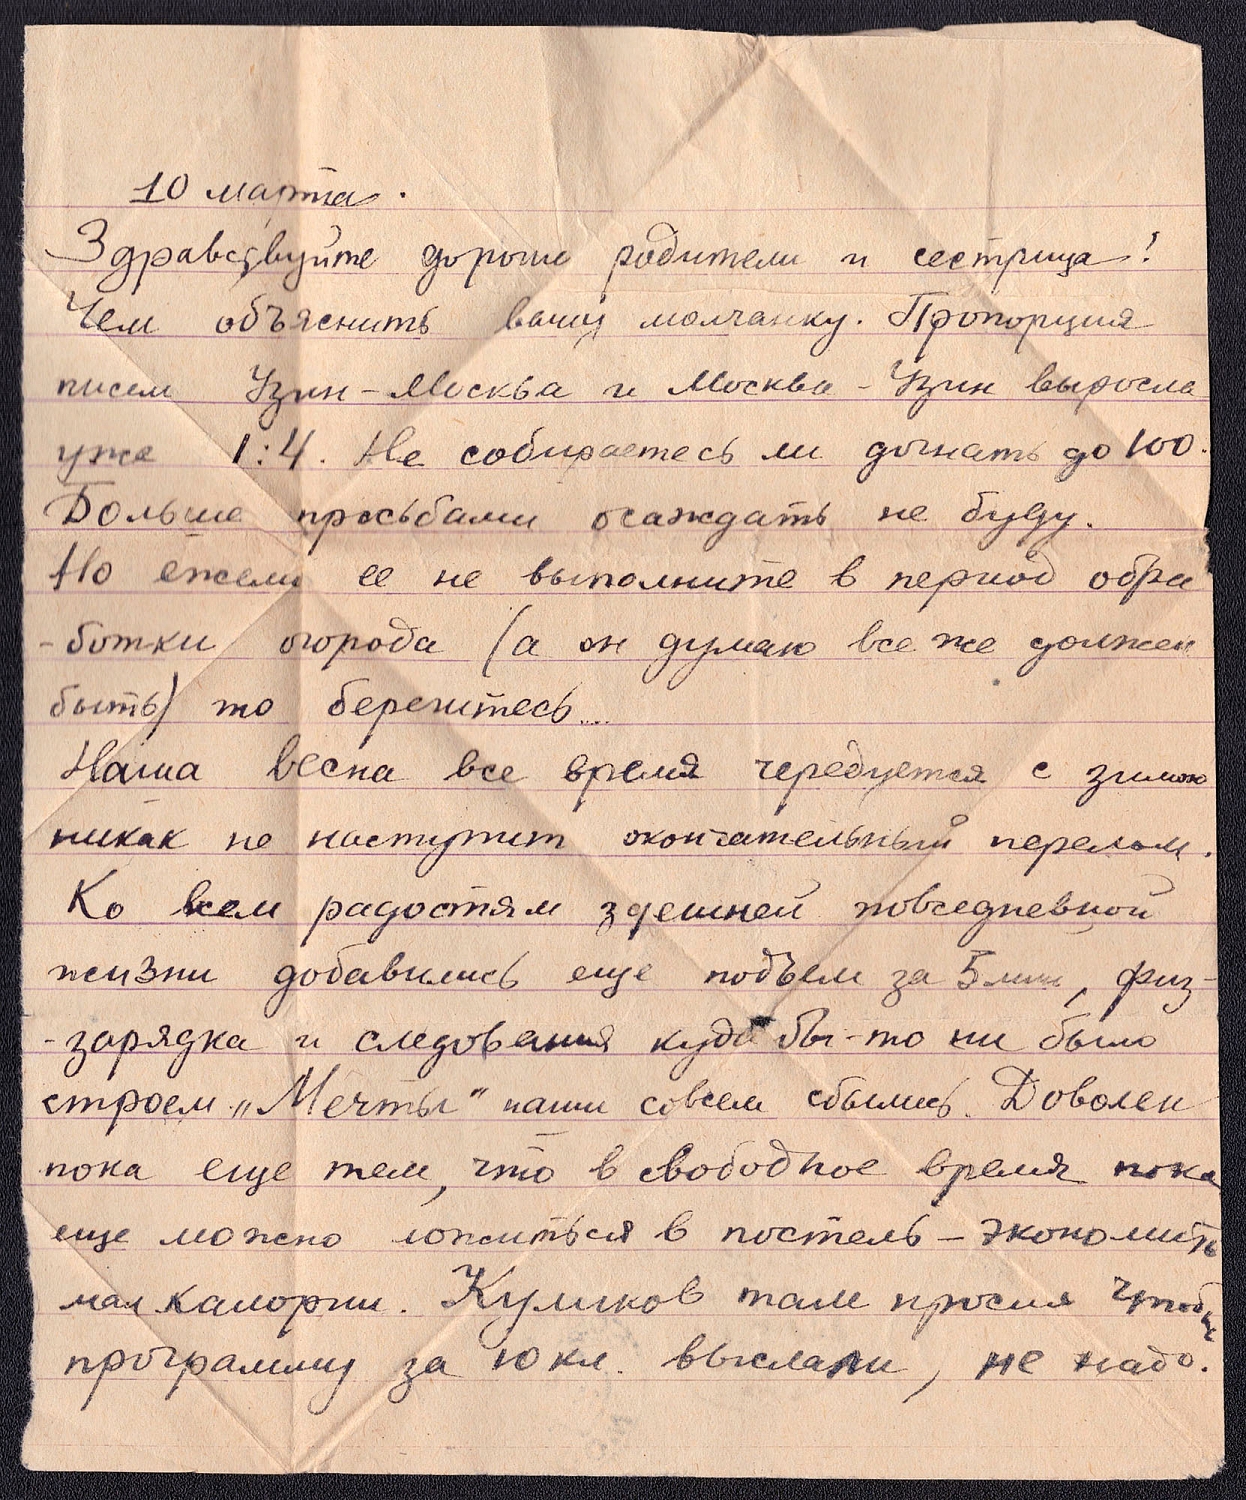 10 марта.
Здравствуйте дорогие родители и сестрица!
Чем объяснить вашу молчанку. Пропорция
писем Узин-Москва и Москва-Узин выросла
уже 1:4. Не собираетесь ли догнать до 100.
Больше просьбами осаждать не буду.
Но ежели ее не выполните в период обра
-ботки огорода (а он думаю все же должен
быть) то берегитесь....
Наша весна все время чередуется с зимою
никак не наступит окончательный перелом.
Ко всем радостям здешней повседневной
жизни добавились еще подъем за 5 мин, физ-
-зарядка и следования куда бы-то ни было
строем. „Мечты" наши совсем сбылись. Доволен
пока еще тем, что в свободное время пока
еще можно ложиться в постель - экономить
калории. Куликов там просил чтобы
программу за 10 кл. выслали, не надо.